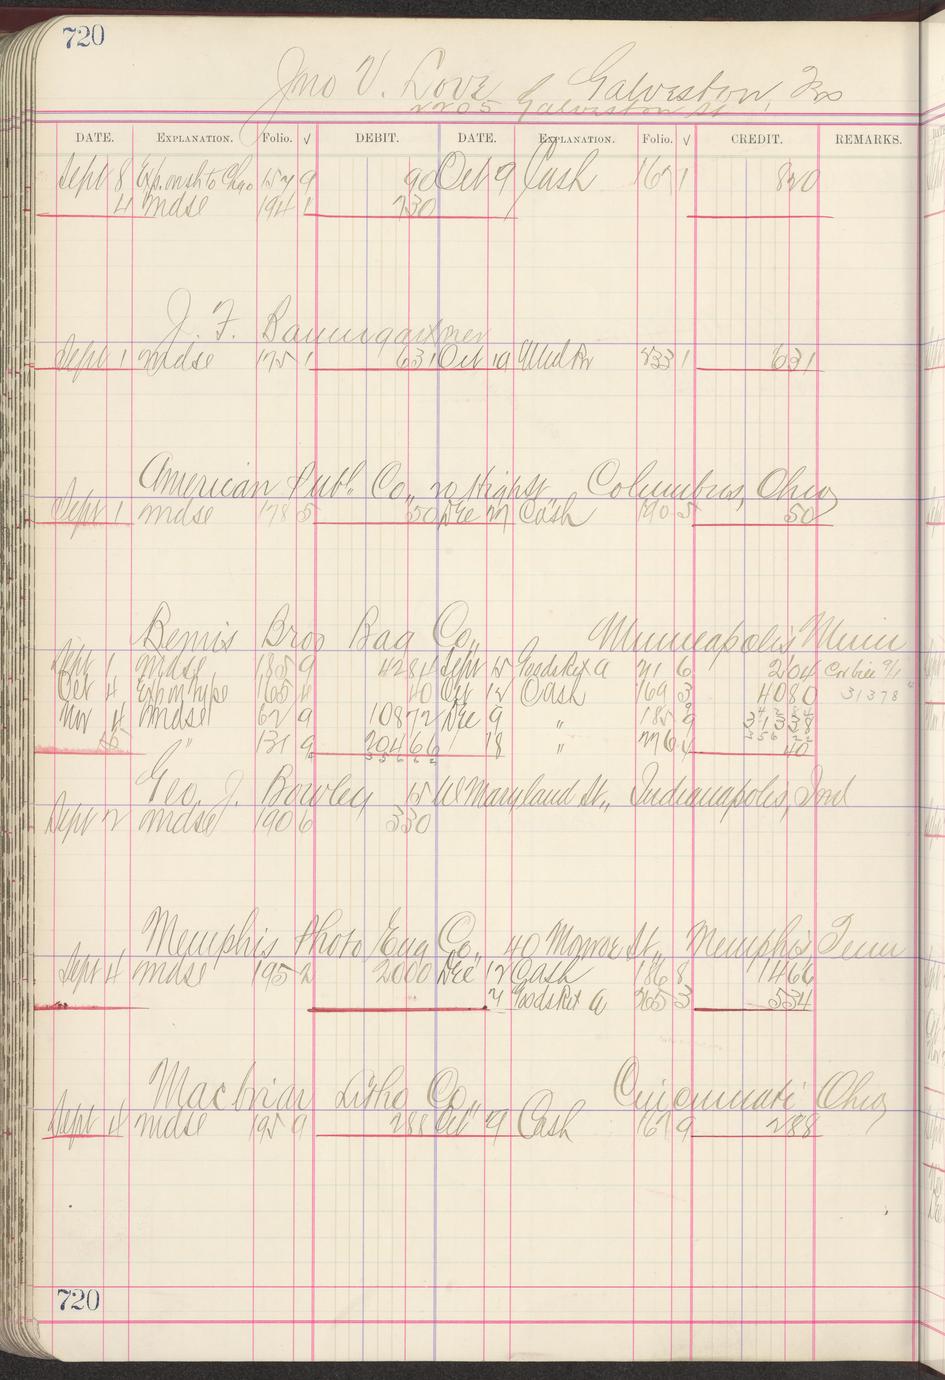 720
Jno V. Love Galveston, Tex
2205 Galveston St
DATE. EXPLANATION. Folio. √ DEBIT. DATE. EXPLANATION. Folio. √ CREDIT. REMARKS.
Sept 8 Exp. on sh to Chgo 157 9 90 Oct 9 Cash 167 1 820
4 Mdse 194 1 730
J. F. Baumgartner
Sept 1 Mdse 175 1 631 Oct 19 833 1 631
American Publ. Co., 20 High St., Columbus, Ohio
Sept 1 Mdse 178 5 50 Dec 27 Cash 190 5 50
Bemis Bros Bag Co., Minneapolis, Minn
Sept 1 Mdse 185 9 4284 Sept 15 Goods Ret a 211 6 204
Oct 4 Exp on type 165 4 40 Oct 12 Cash 169 3 4080 31378
Nov 4 Mdse 62 9 10872 Dec 9 " 185 9 31338
" 131 9 20466 18 " 276 4 40
Geo. J. Bowley 15 W Maryland St., Indianapolis, Ind
Sept 2 Mdse 190 6 330
Memphis Photo Eng Co., 40 Monroe St., Memphis, Tenn
Sept 4 Mdse 195 2 2000 Dec 12 Cash 186 8 1466
Goods Ret a 265 3 534
Macbriar Litho Co., Cincinnati Ohio
Sept 4 Mdse 195 9 288 Oct 9 Cash 167 9 288
720